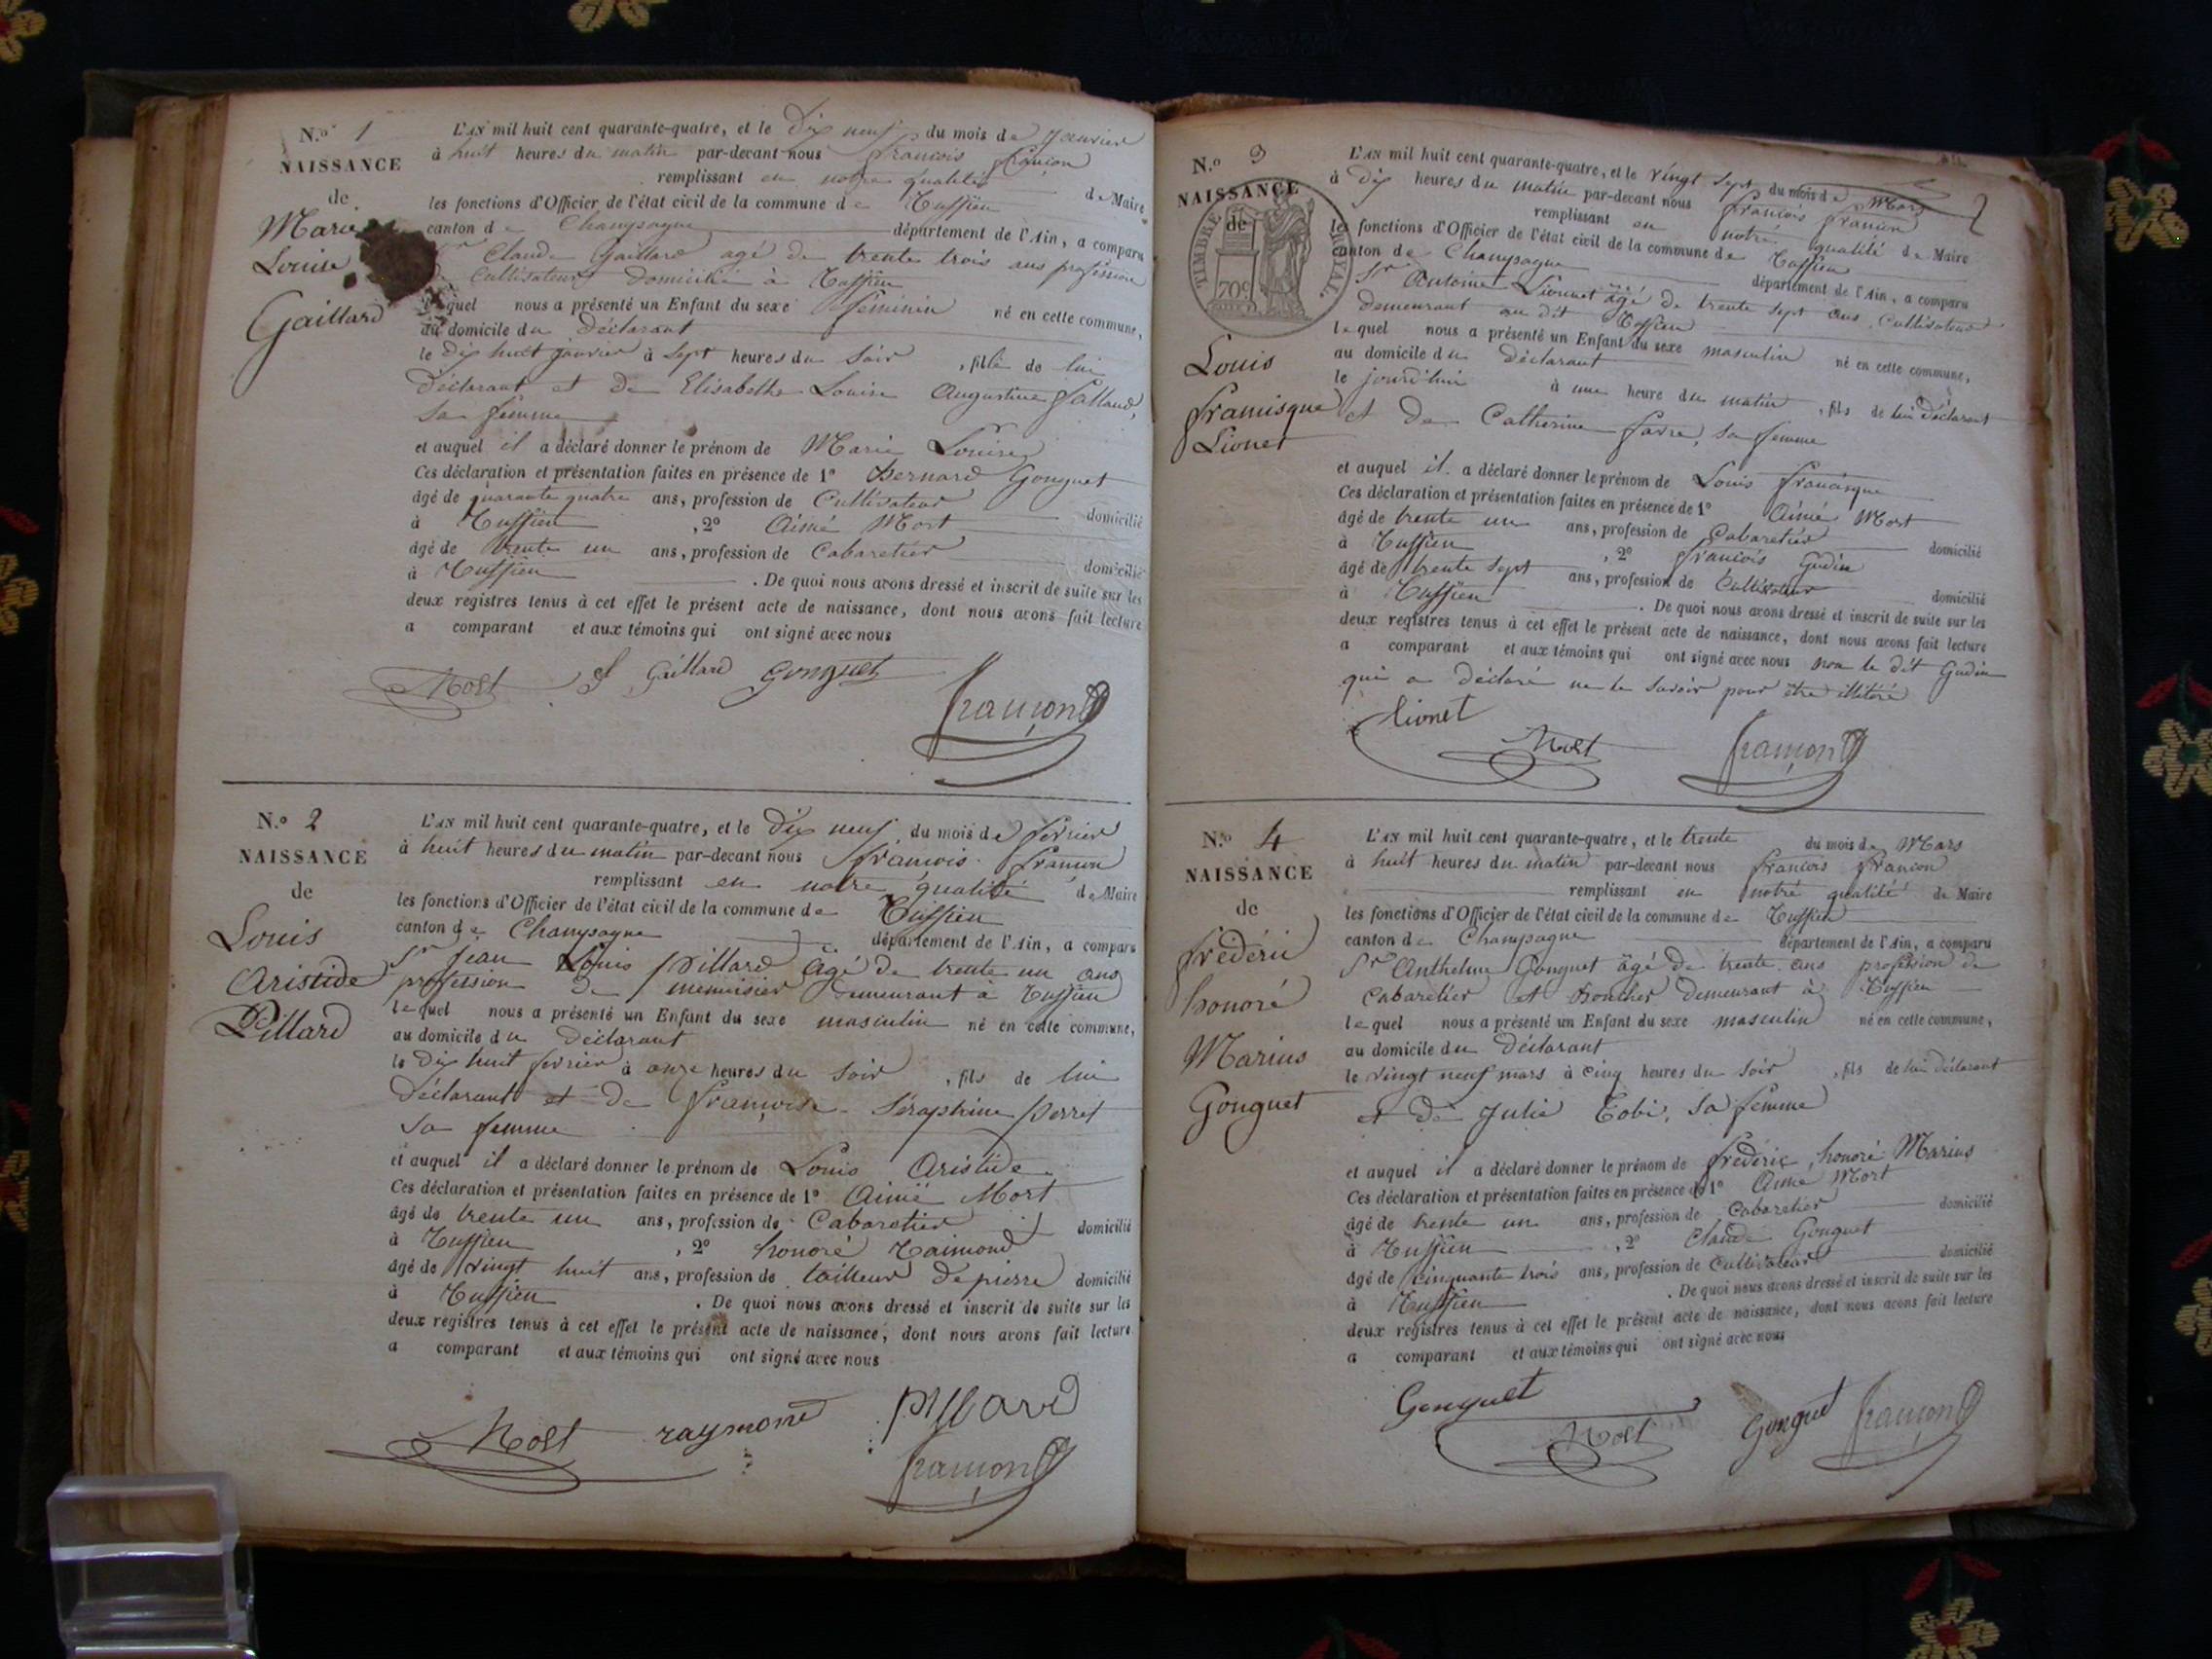 N.º 1
NAISSANCE
de
Marie
Louise
Gaillard
L'AN mil huit cent quarante-quatre, et le Dix neuf du mois de Janvier
à huit heures du matin par-devant nous François Françon
remplissant en notre qualité de Maire
les fonctions d'Officier de l'état civil de la commune de Tussieu
canton de Champagne département de l'Ain, a comparu
Sr Claude Gaillard agé de trente trois ans profession
Cultivateur domicilié à Tussieu
lequel nous a présenté un Enfant du sexe féminin né en cette commune,
au domicile du Déclarant
le Dix huit janvier à Sept heures du Soir , fille de lui
Déclarant et de Elisabethe Louise Augustine
sa femme
et auquel il a déclaré donner le prénom de Marie Louise
Ces déclaration et présentation faites en présence de 1º Bernard Gonguet
âgé de quarante quatre ans, profession de Cultivateur domicilié
à Tussieu , 2º Aimé Mort
âgé de trente un ans, profession de Cabaretier domicilié
à Tussieu . De quoi nous avons dressé et inscrit de suite sur les
deux registres tenus à cet effet le présent acte de naissance, dont nous avons fait lecture
a comparant et aux témoins qui ont signé avec nous
Mort Gaillard Gonguet
françon
N.º 2
NAISSANCE
de
Louis
Aristide
Pillard
L'AN mil huit cent quarante-quatre, et le Dix neuf du mois de février
à huit heures du matin par-devant nous François Françon
remplissant en notre qualité de Maire
les fonctions d'Officier de l'état civil de la commune de Tussieu
canton de Champagne département de l'Ain, a comparu
Sr Jean Louis Pillard agé de trente un ans
profession de menuisier demeurant à Tussieu
lequel nous a présenté un Enfant du sexe masculin né en cette commune,
au domicile du Déclarant
le Dix huit février à onze heures du Soir , fils de lui
Déclarant et de Françoise Séraphine Perret
sa femme
et auquel il a déclaré donner le prénom de Louis Aristide
Ces déclaration et présentation faites en présence de 1º Aimé Mort
âgé de trente un ans, profession de Cabaretier domicilié
à Tussieu , 2º honoré Raimond
âgé de vingt huit ans, profession de tailleur de pierre domicilié
à Tussieu . De quoi nous avons dressé et inscrit de suite sur les
deux registres tenus à cet effet le présent acte de naissance, dont nous avons fait lecture
a comparant et aux témoins qui ont signé avec nous
Mort raymond pillard
françon
N.º 3
NAISSANCE
de
TIMBRE ROYAL
70c
Louis
Francisque
Lionet
L'AN mil huit cent quarante-quatre, et le vingt sept du mois de Mars
à dix heures du matin par-devant nous François Françon
remplissant en notre qualité de Maire
les fonctions d'Officier de l'état civil de la commune de Tussieu
canton de Champagne département de l'Ain, a comparu
Sr Antoine Lionnet âgé de trente sept ans, Cultivateur
demeurant au dit Tussieu
lequel nous a présenté un Enfant du sexe masculin né en cette commune,
au domicile du Déclarant
le jourd'hui à une heure du matin , fils de lui Déclarant
et de Catherine favre, sa femme
et auquel il a déclaré donner le prénom de Louis Francisque
Ces déclaration et présentation faites en présence de 1º Aimé Mort
âgé de trente un ans, profession de Cabaretier domicilié
à Tussieu , 2º François Gudin
âgé de trente sept ans, profession de Cultivateur domicilié
à Tussieu . De quoi nous avons dressé et inscrit de suite sur les
deux registres tenus à cet effet le présent acte de naissance, dont nous avons fait lecture
a comparant et aux témoins qui ont signé avec nous non le dit Gudin
qui a déclaré ne le savoir pour être illitéré
lionet
Mort françon
N.º 4
NAISSANCE
de
frédéric
honoré
Marius
Gonguet
L'AN mil huit cent quarante-quatre, et le trente du mois de Mars
à huit heures du matin par-devant nous François Françon
remplissant en notre qualité de Maire
les fonctions d'Officier de l'état civil de la commune de Tussieu
canton de Champagne département de l'Ain, a comparu
Sr Anthelme Gonguet âgé de trente ans profession de
Cabaretier et boucher demeurant à Tussieu
lequel nous a présenté un Enfant du sexe masculin né en cette commune,
au domicile du Déclarant
le vingt neuf mars à Cinq heures du Soir , fils de lui Déclarant
et de Julie Tobi, sa femme
et auquel il a déclaré donner le prénom de frédéric, honoré Marius
Ces déclaration et présentation faites en présence de 1º Aimé Mort
âgé de trente un ans, profession de Cabaretier domicilié
à Tussieu , 2º Claude Gonguet
âgé de Cinquante trois ans, profession de Cultivateur domicilié
à Tussieu . De quoi nous avons dressé et inscrit de suite sur les
deux registres tenus à cet effet le présent acte de naissance, dont nous avons fait lecture
a comparant et aux témoins qui ont signé avec nous
Gonguet
Mort Gonguet françon